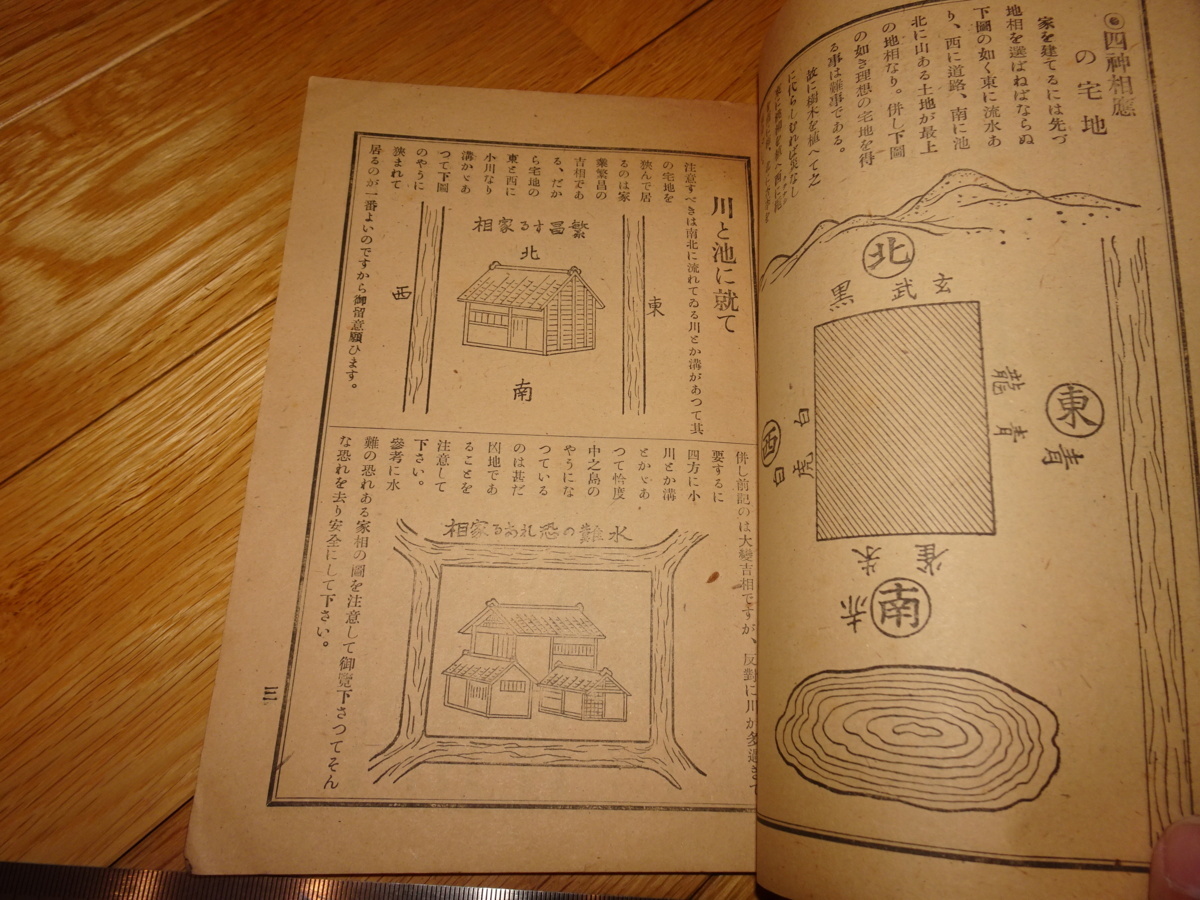 ◉四神相應
の宅地
家を建てるには先づ
地相を選ばねばならぬ
下圖の如く東に流水あ
り、西に道路、南に池
北に山ある土地が最上
の地相なり。併し下圖
の如き理想の宅地を得
る事は難事である。
故に樹木を植へて之
に代らしむれば災なし
北
黒
玄武
東
青
青龍
西
白
白虎
南
赤
朱雀
川と池に就て
注意すべきは南北に流れてゐる川とか溝があつて其
の宅地を
狹んで居
るのは家
業繁昌の
吉相であ
る、だか
ら宅地の
東と西に
小川なり
溝かゞあ
つて下圖
のやうに
狹まれて
居るのが一番よいのですから御留意願ひます。
繁昌する家相
北
東
西
南
併し前記のは大變吉相ですが、反對に川が多過ぎて
要するに
四方に小
川とか溝
とかゞあ
つて恰度
中之島の
やうにな
つている
のは甚だ
凶地であ
ることを
注意して
下さい。
參考に水
難の恐れある家相の圖を注意して御覽下さつてそん
な恐れを去り安全にして下さい。
水難の恐れある家相
三